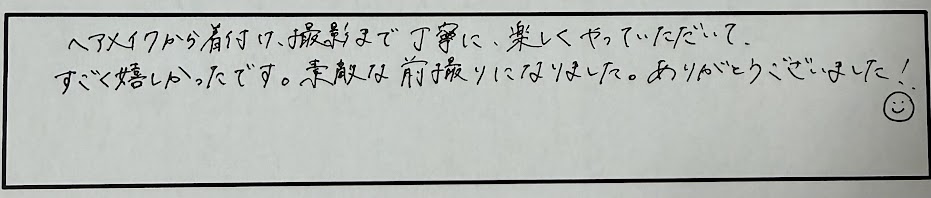 ヘアメイクから着付け、撮影まで丁寧に、楽しくやっていただいて、
すごく嬉しかったです。素敵な前撮りになりました。ありがとうございました!